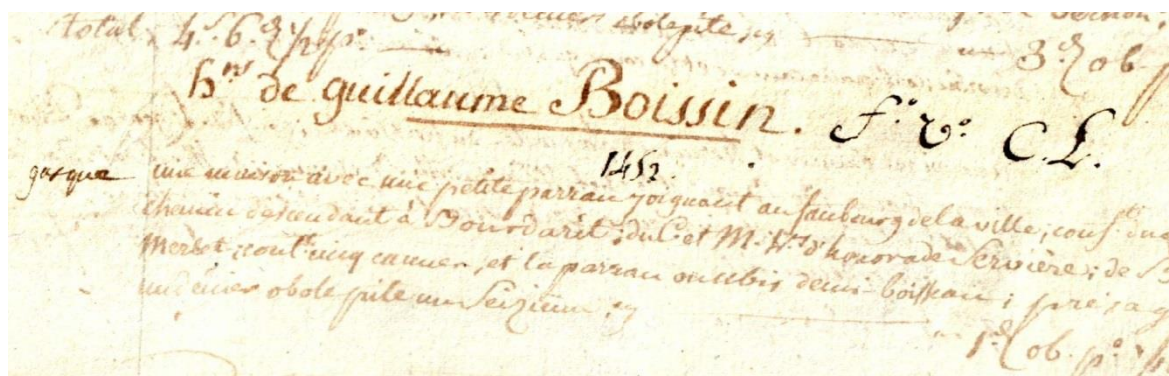 total, 4.6. obolepite, 3 ob
h.rs de guillaume Boissin. f.o v.o C.L.
1452.
gasque une maison avec une petite parran joignant au faubourg de la ville; conf.t du
chemin descendant à Bourdarit; du C. et M. h.rs d'honorade Servière; de
Merlet; cont. cinq cannes, et la parran demi-boisseau; présag
un denier obole pite un seizième;
1 ob. p.o